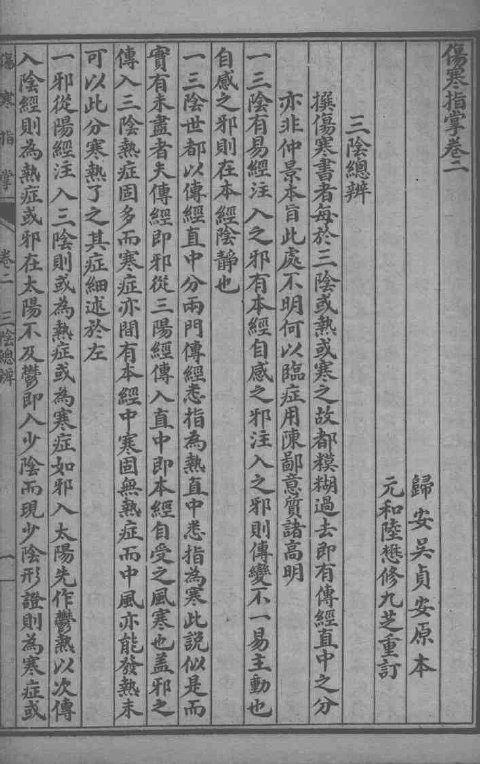 傷寒指掌卷二
歸安吳貞安原本
元和陸懋修九芝重訂
三陰總辨
撰傷寒書者每於三陰或熱或寒之故都模糊過去即有傳經直中之分
亦非仲景本旨此處不明何以臨症用陳鄙意質諸高明
一三陰有易經注入之邪有本經自感之邪注入之邪則傳變不一易主動也
自感之邪則在本經陰靜也
一三陰世都以傳經直中分兩門傳經悉指為熱直中悉指為寒此説似是而
實有未盡者夫傳經即邪從三陽經傳入直中即本經自受之風寒也蓋邪之
傳入三陰熱症固多而寒症亦間有本經中寒固無熱症而中風亦能發熱未
可以此分寒熱了之其症細述於左
一邪從陽經注入三陰則或為熱症或為寒症如邪入太陽先作鬱熱以次傳
入陰經則為熱症或邪在太陽不及鬱即入少陰而現少陰形證則為寒症或
傷寒指掌 卷二 三陰總辨 一